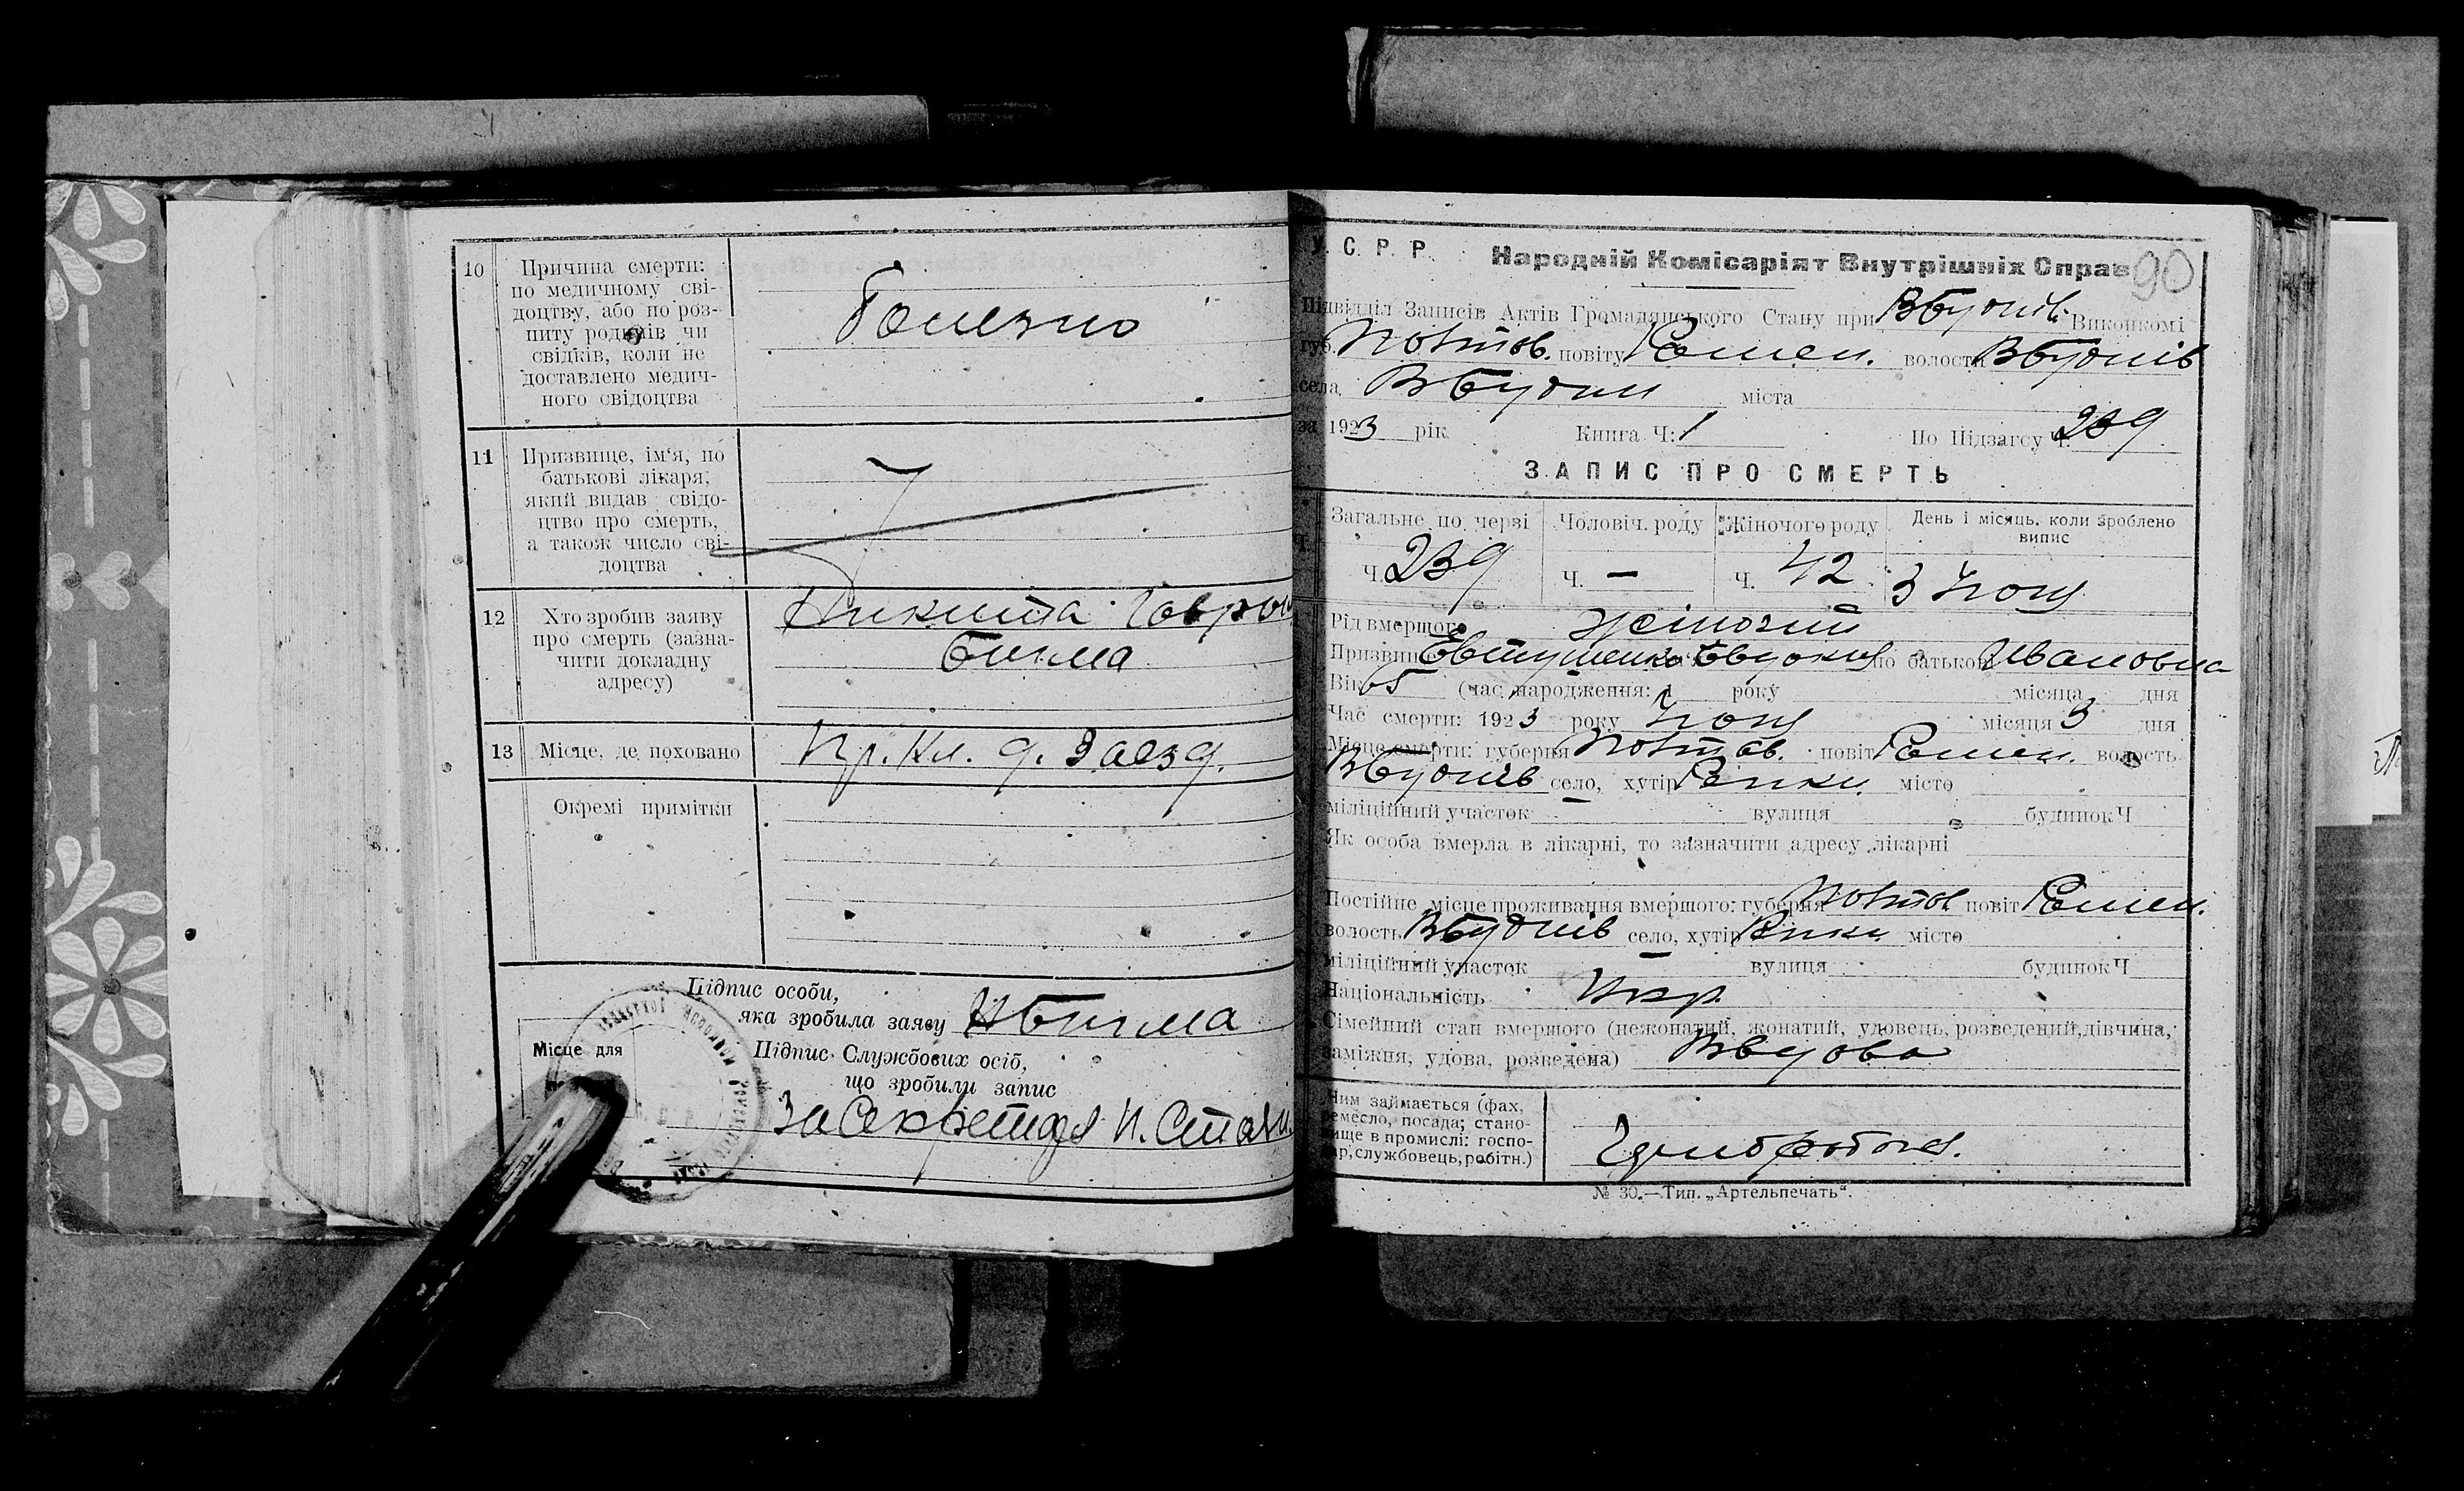 10 Причина смерти:
по медичному сві-
доцтву, або по роз-
питу родичів чи
свідків, коли не
доставлено медич-
ного свідоцтва
11 Призвище, ім'я, по
батькові лікаря,
який видав свідо-
цтво про смерть,
а також число сві-
доцтва
12 Хто зробив заяву
про смерть (зазна-
чити докладну
адресу)
Никита
Бигма
13 Місце, де поховано
Окремі примітки
Підпис особи,
яка зробила заяву НБигма
Місце для
Підпис Службових осіб,
що зробили запис
За Секретаря
У. С. Р. Р. Народній Комісаріят Внутрішніх Справ 90
Підвідділ Записів Актів Громадянського Стану при Вбудків. Виконкомі
губ. Полтав. повіту Ромен. волости
села міста
за 1923 рік Книга Ч: 1 По Підзагсу Ч. 239
ЗАПИС ПРО СМЕРТЬ
Загальне по черві Чоловіч. роду Жіночого роду День і місяць, коли зроблено
випис
Ч. Ч. 239 Ч. — Ч. 42 3
Рід вмершого Жіночий
Призвище Евтушенко Евдокия по батькові Ивановна
Вік 65 (час народження: 1 року місяца дня
Час смерти: 1923 року місяця 3 дня
Місце смерти: губерня Полтав. повіт Ромен. волость
село, хутір місто
міліційний участок вулиця будинок Ч
Як особа вмерла в лікарні, то зазначити адресу лікарні
Постійне місце проживання вмершого: губерня Полтав повіт Ромен.
волость село, хутір місто
міліційний участок вулиця будинок Ч
Національність Укр.
Сімейний стан вмершого (нежонатий, жонатий, удовець, розведений, дівчина,
заміжня, удова, розведена) Вдова
Чим займається (фах,
ремесло, посада; стано-
вище в промислі: госпо-
дар, службовець, робітн.)
№ 30.—Тип. „Артельпечать“.